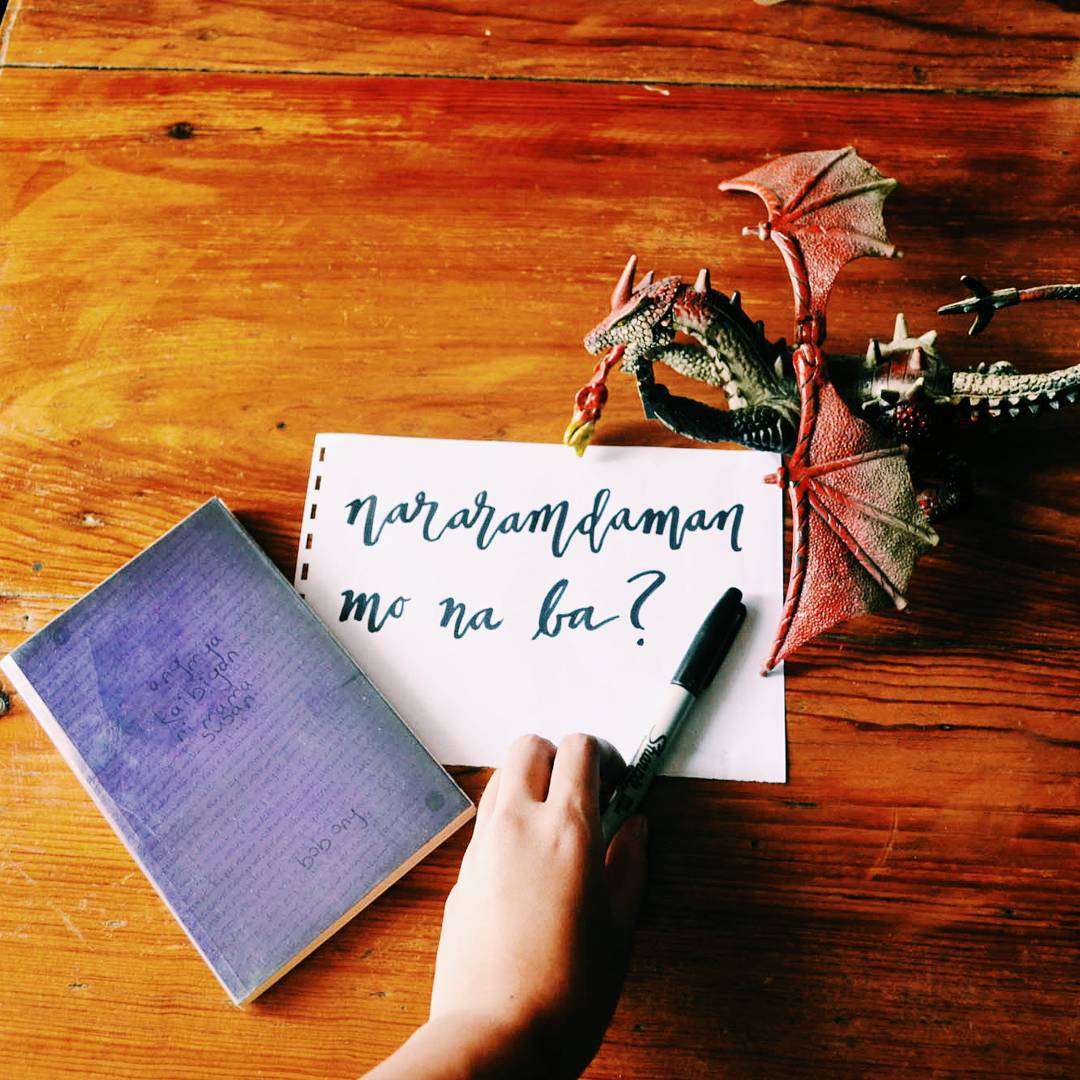 nararamdaman
mo na ba?
ang mga
kaibigan
ni mama
susan
bob ong
Sharpie